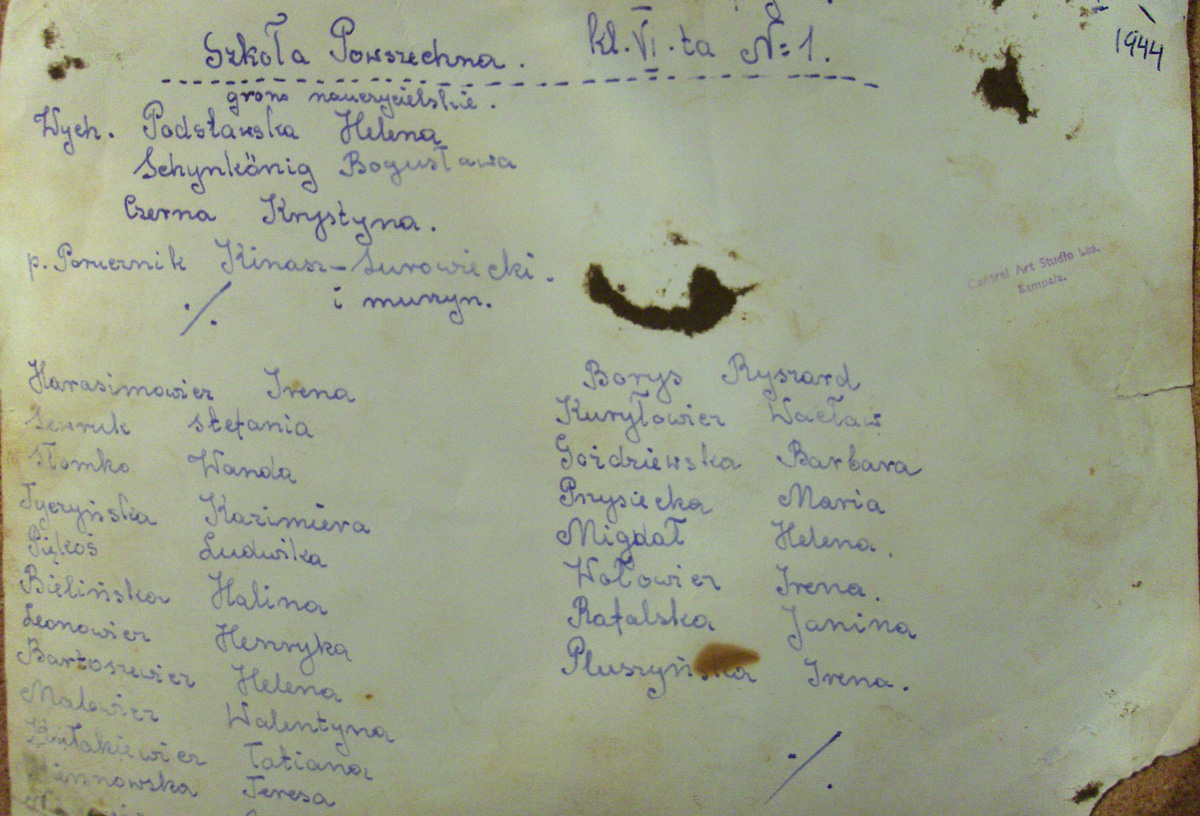 1944
Szkoła Powszechna. kl. VI. ta №1.
grono nauczycielskie.
Wych. Podsławska Helena
Schynkönig Bogusława
Czerna Krystyna.
p. Porucznik Kinasz-Surowiecki.
i murzyn.
Central Art Studio Ltd.
Kampala.
Harasimowicz Irena
Stefania
Słomko Wanda
Tyczyńska Kazimiera
Piękoś Ludwika
Bielińska Halina
Leonowicz Henryka
Bartoszewicz Helena
Malewicz Walentyna
Tatiana
Teresa
Borys Ryszard
Kuryłowicz Wacław
Goździewska Barbara
Przysiecka Maria
Migdał Helena.
Wołowicz Irena.
Rafalska Janina
Pluszyńska Irena.